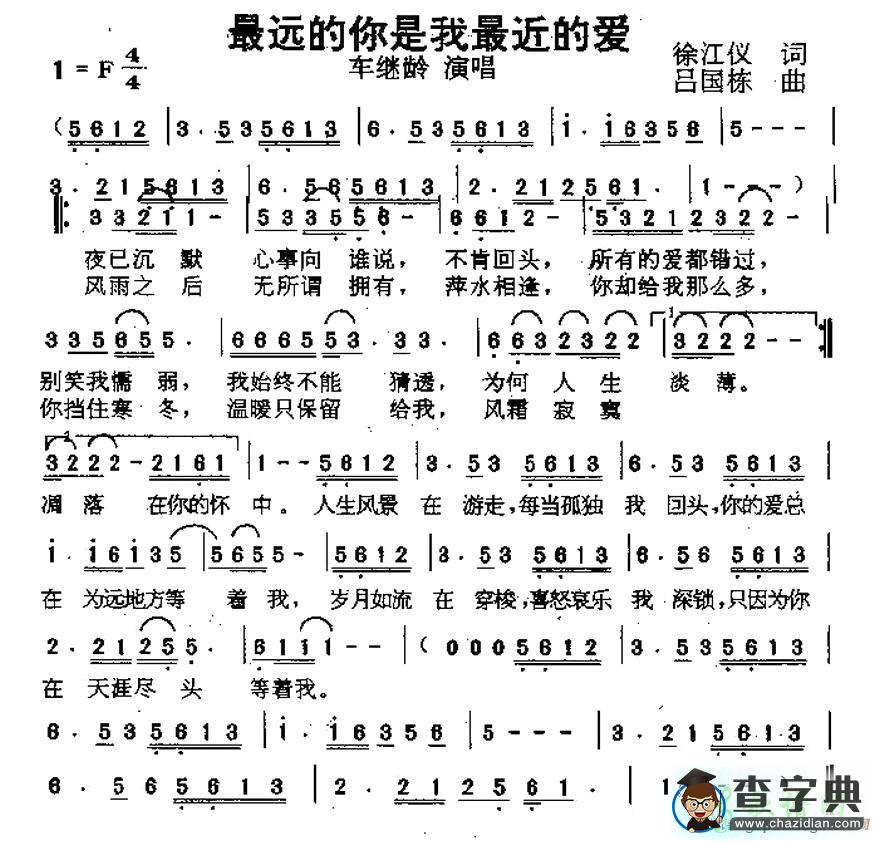 最远的你是我最近的爱
1 = F 4/4
车继龄 演唱
徐江仪 词
吕国栋 曲
( 5 6 1 2 | 3 . 5 3 5 6 1 3 | 6 . 5 3 5 6 1 3 | i . i 6 3 5 6 | 5 - - - |
3 . 2 1 5 6 1 3 | 6 . 5 6 5 6 1 3 | 2 . 2 1 2 5 6 1 . | 1 - - - )
‖: 3 3 2 1 1 - | 5 3 3 5 5 6 - | 6 6 1 2 - | 5 3 2 1 2 3 2 2 - |
夜已沉 默 心事向 谁说, 不肯回头, 所有的爱都错过,
风雨之 后 无所谓 拥有, 萍水相逢, 你却给我那么多,
3 3 5 6 5 5 . | 6 6 6 5 5 3 . 3 3 . | 6 6 3 2 3 2 2 | 1 3 2 2 2 - - :‖
别笑我懦 弱, 我始终不能 猜透, 为何 人 生 淡 薄。
你挡住寒 冬, 温暖只保留 给我, 风霜 寂 寞
1 3 2 2 2 - 2 1 6 1 | 1 - - 5 6 1 2 | 3 . 5 3 5 6 1 3 | 6 . 5 3 5 6 1 3 |
凋 落 在你的怀 中。 人生风景 在 游走,每当孤独 我 回头,你的爱总
i . i 6 i 3 5 | 5 6 5 5 - | 5 6 1 2 | 3 . 5 3 5 6 1 3 | 6 . 5 6 5 6 1 3 |
在 为远地方等 着 我, 岁月如流 在 穿梭,喜怒哀乐 我 深锁,只因为你
2 . 2 1 2 5 5 . | 6 1 1 1 - - | ( 0 0 0 5 6 1 2 | 3 . 5 3 5 6 1 3 |
在 天涯尽 头 等着我。
6 . 5 3 5 6 1 3 | i . i 6 3 5 6 | 5 - - - | 3 . 2 1 5 6 1 3 |
6 . 5 6 5 6 1 3 | 2 . 2 1 2 5 6 1 . | 1
查字典
www.chazidian.com